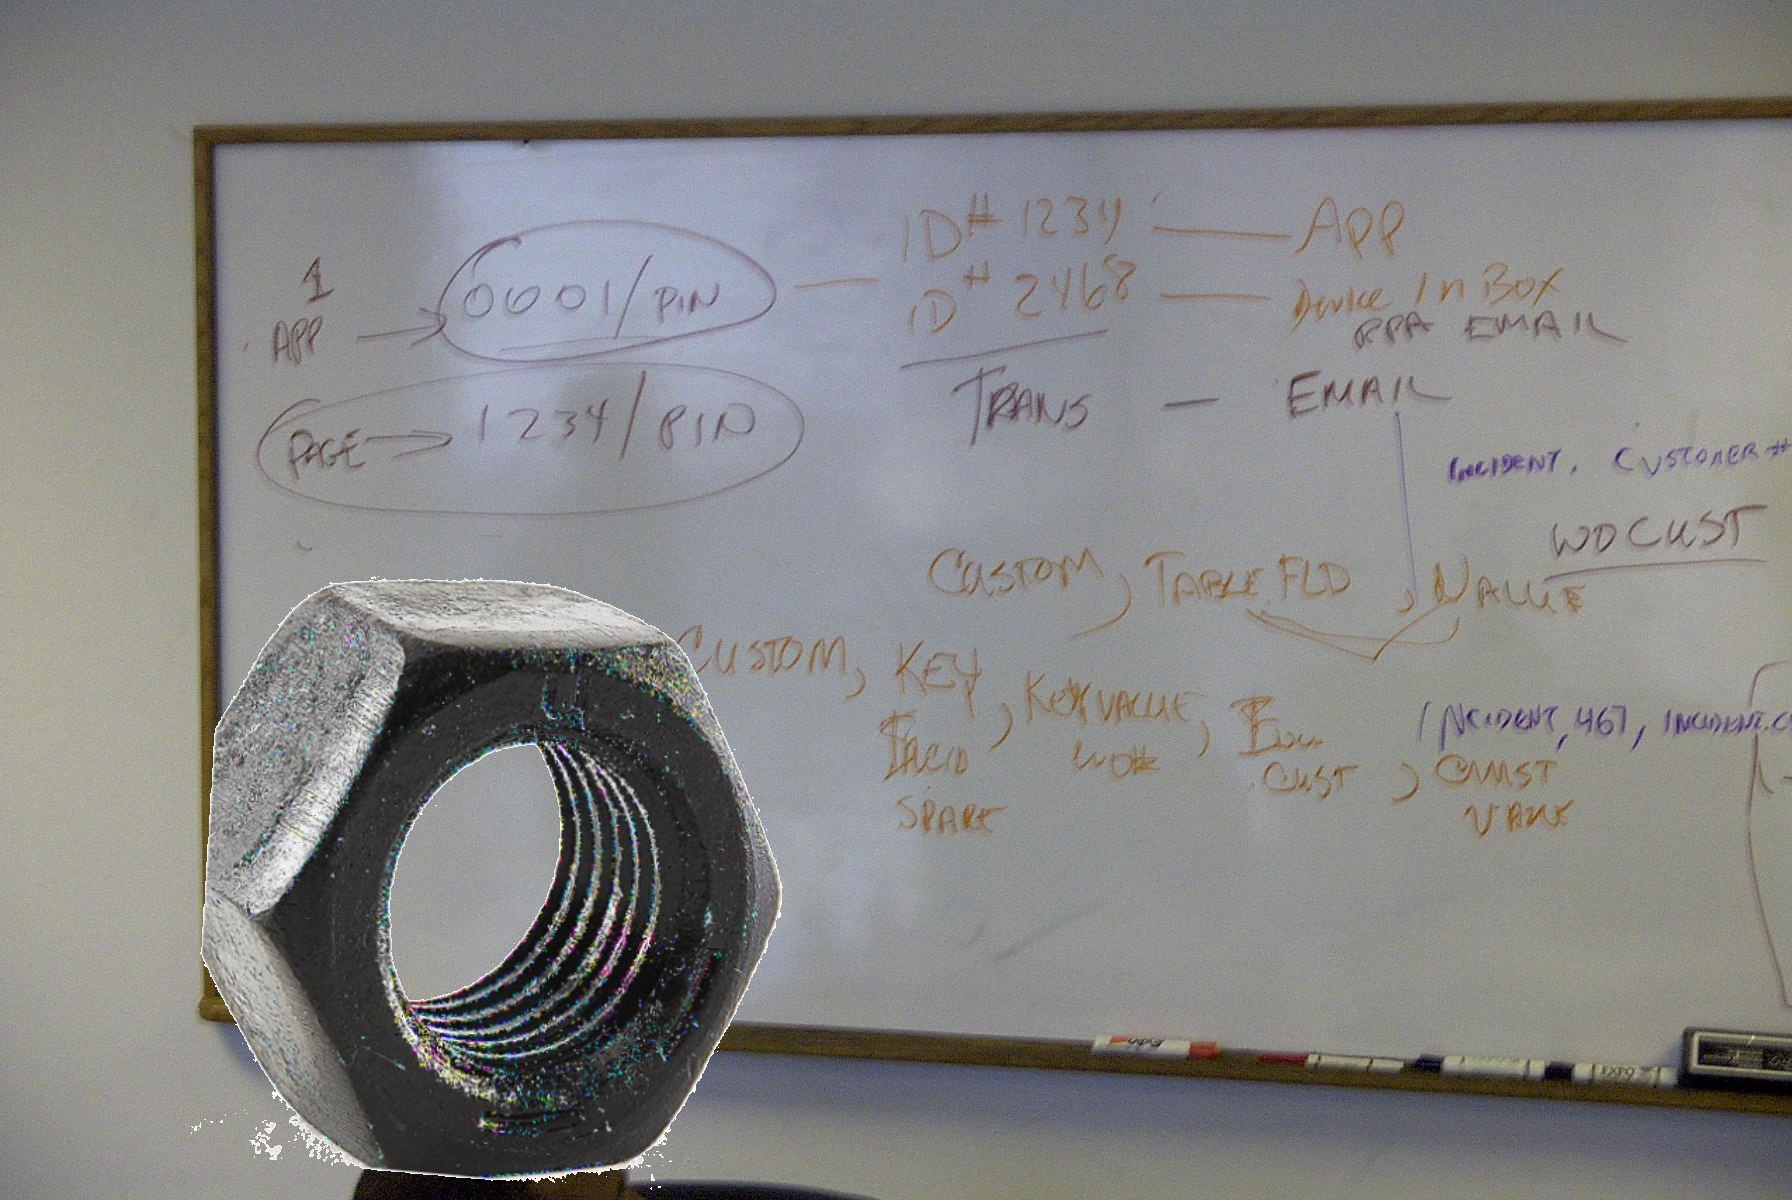 1
APP → 0001/PIN — ID# 1234 — APP
ID# 2468 — Device In Box
RPA EMAIL
PAGE → 1234/PIN
TRANS — EMAIL
INCIDENT, CUSTOMER #
WO CUST
CUSTOM, TABLE.FLD, VALUE
CUSTOM, KEY, KEY VALUE,
INCIDENT, 467, INCIDENT.C
WO#
CUST, CUST
SPARE
VALUE
EXPO